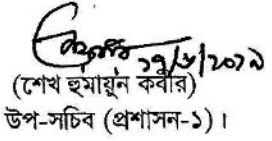 ১৭/৮/২০১৯
(শেখ হুমায়ুন কবীর)
উপ-সচিব (প্রশাসন-১)।